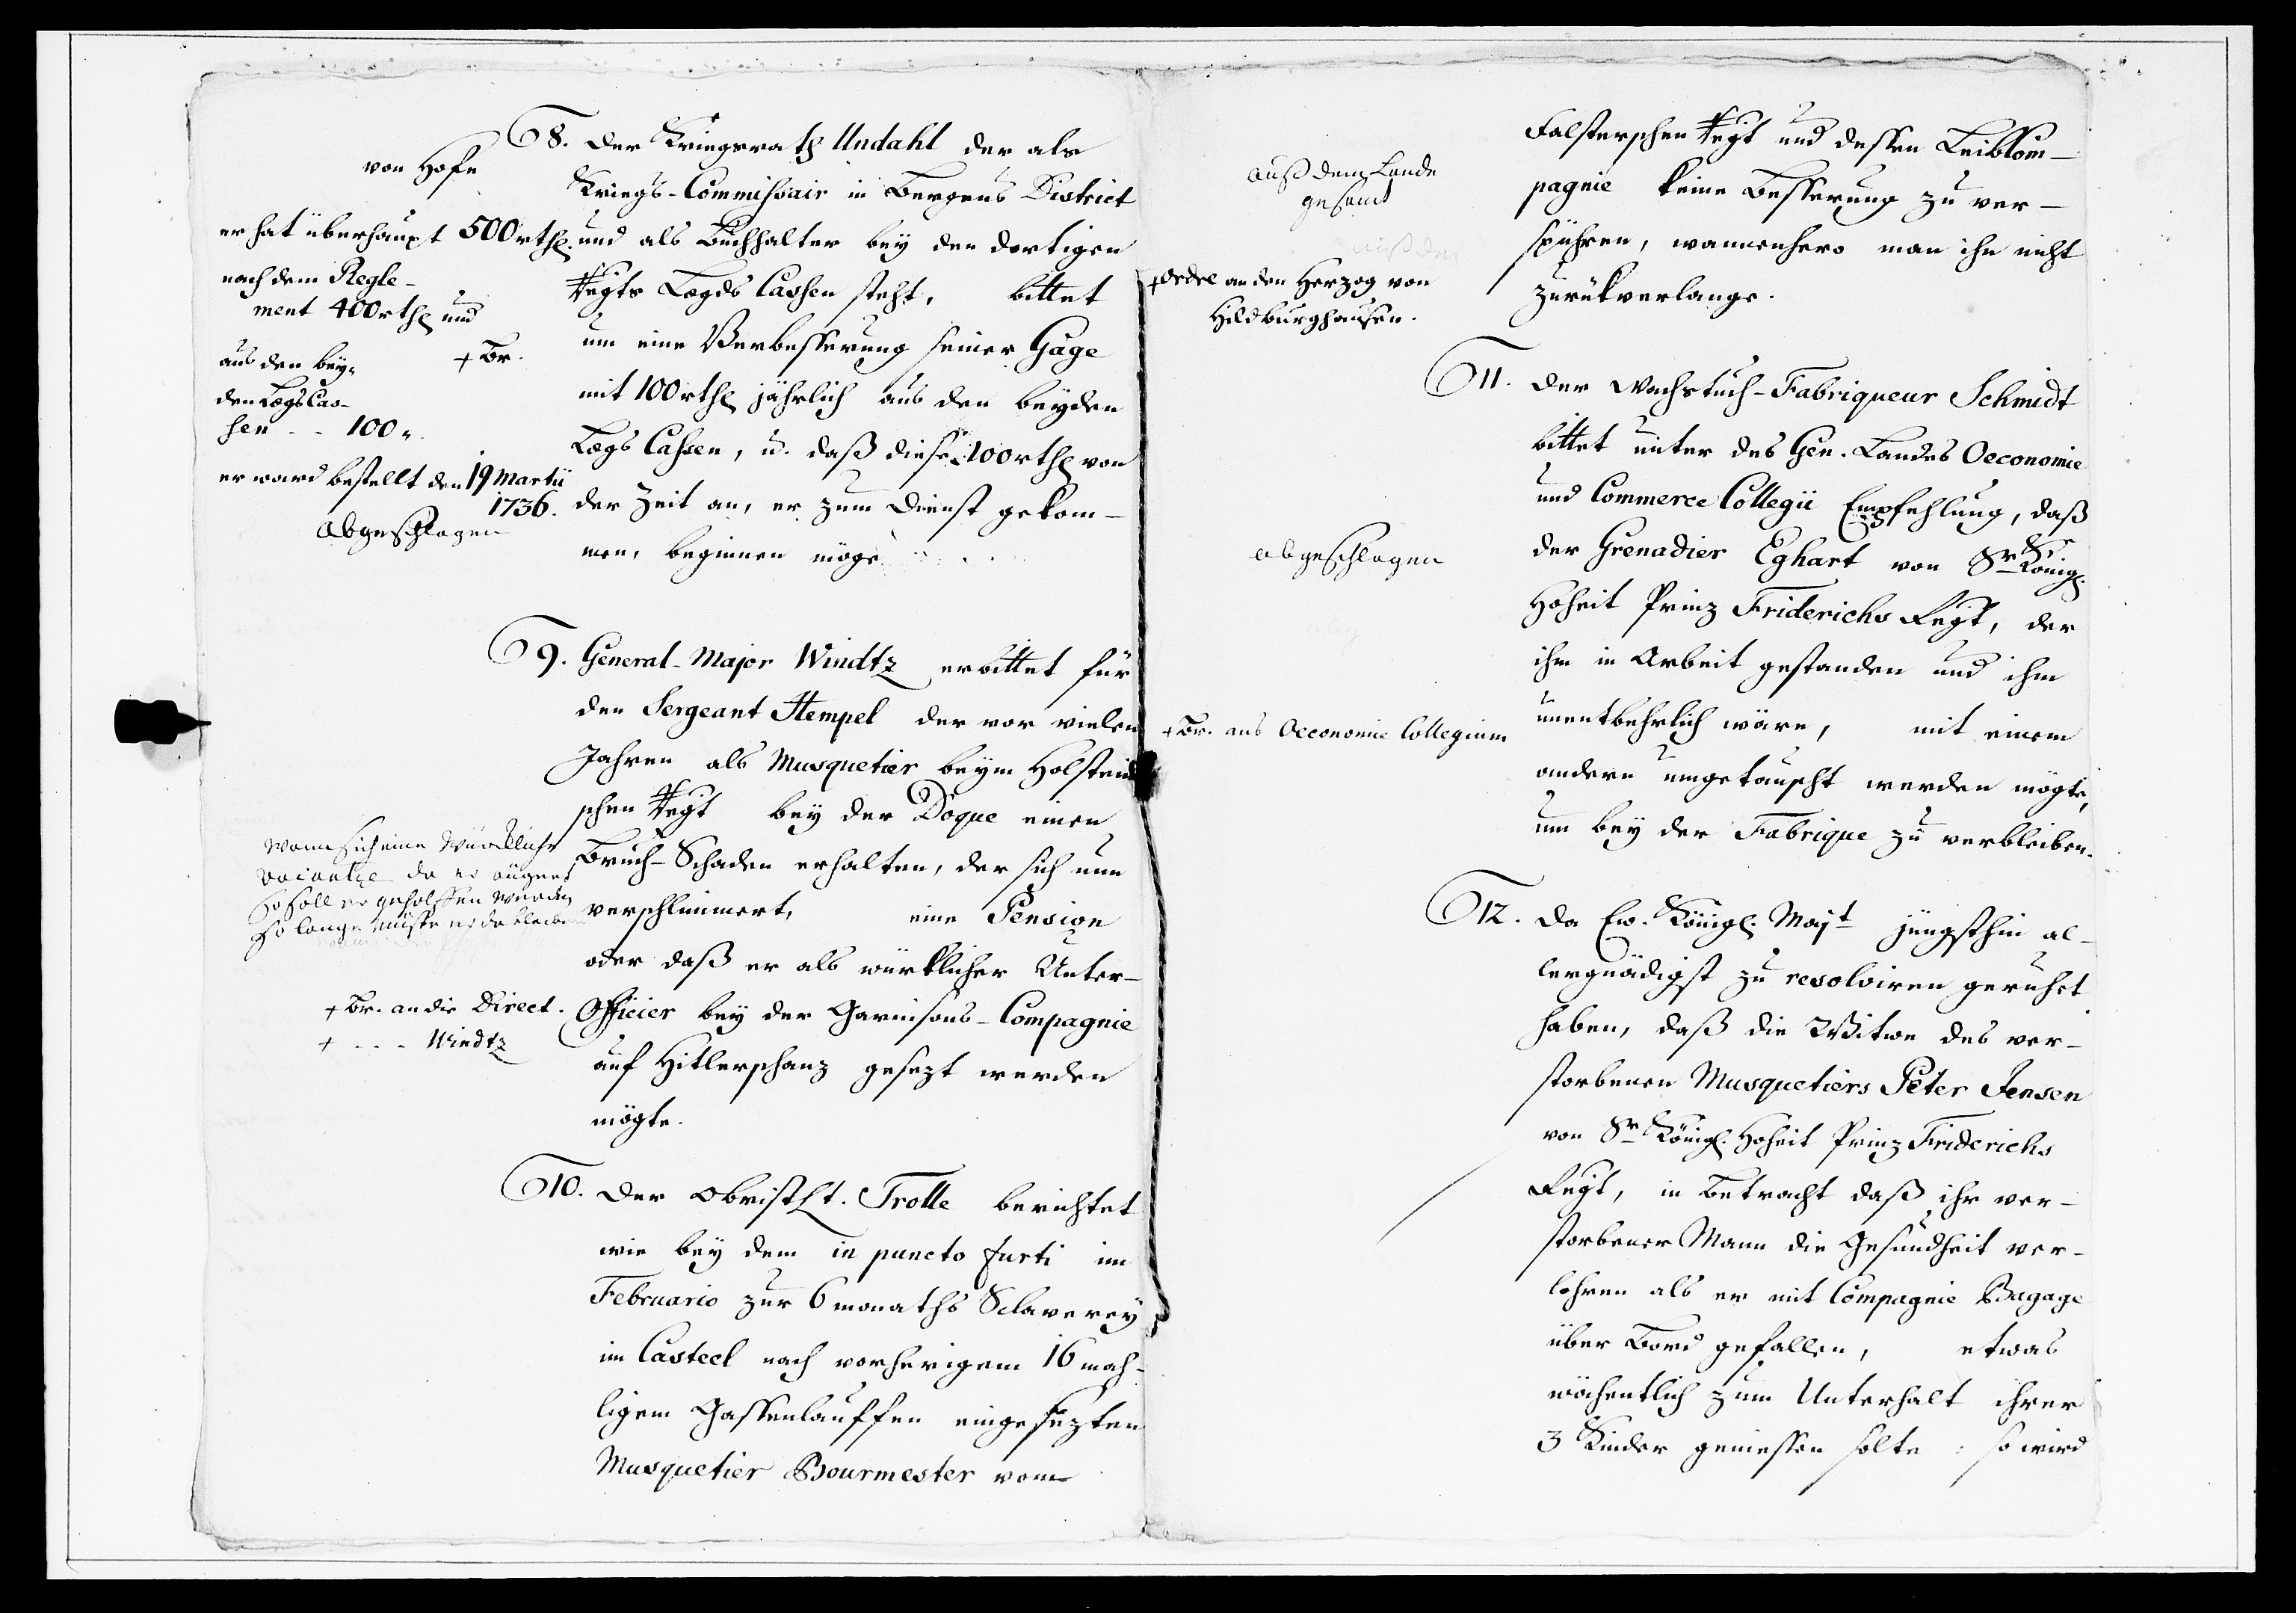 8. der Kriegsrath Undahl der als
von Hofe
Kriegs-Commissair in Bergens District
er hat überhaupt 500 rthl.
und als Buchhalter bey den dortigen
nach dem Regle-
ment 400 rthl und
Regts Lægds Cassen steht, bittet
um eine Verbesserung seiner Gage
+ Br.
aus den bey-
den Lægs Cas-
sen - - 100 "
mit 100 rthl jährlich aus den beyden
Lægs Cassen, u. daß diese 100 rthl von
er ward bestellt den 19 Martii
1736.
der Zeit an, er zum Dienst gekom-
Abgeschlagen
men, beginnen möge.
9. General-Major Windtz erbittet für
den Sergeant Stempel der vor vielen
Jahren als Musquetier beym Holstein-
schen Regt bey der Doque einen
Bruch-Schaden erhalten, der sich nun
verschlimmert, eine Pension
oder daß er als würklicher Unter-
Officier bey der Garnisons-Compagnie
auf Hitlerschanz gesezt werden
mögte.
Wann sich eine Würckliche
vacantze da er äugnet
so soll er geholffen werden
so lange müsse er da bleiben
+ Br. an die Direct.
+ - - - Windtz
10. Der Obristlt. Trolle berichtet
wie bey dem in puncto furti im
Februario zur 6 monaths Sclaverey
im Casteel nach vorherigem 16 mah-
ligem Gassenlauffen eingesezten
Musquetier Bourmester vom
Falsterschen Regt und dessen LeibCom-
pagnie keine Besserung zu ver-
spühren, wannenhero man ihn nicht
zurükverlange.
auß dem Lande
gesandt
+ ordre an den Herzog von
Hildburghausen.
11. Der Wachstuch-Fabriqueur Schmidt
bittet unter des Gen. Landes Oeconomie
und Commerce Collegii Empfehlung, daß
der Grenadier Eghart von Sr Königl.
Hoheit Prinz Friderichs Regt, der
ihm in Arbeit gestanden und ihm
unentbehrlich wäre, mit einem
andern umgetauscht werden mögte,
um bey der Fabrique zu verbleiben.
abgeschlagen
+ Br. ans Oeconomie Collegium
12. Da Ew. Königl. Majt jüngsthin al-
lergnädigst zu resolviren geruhet
haben, daß die Witwe des ver-
storbenen Musquetiers Peter Jensen
von Sr Königl. Hoheit Prinz Friderichs
Regt, in Betracht daß ihr ver-
storbener Mann die Gesundheit ver-
lohren als er mit Compagnie Bagage
über Bord gefallen, etwas
wöchentlich zum Unterhalt ihrer
3 Kinder geniessen solte : so wird